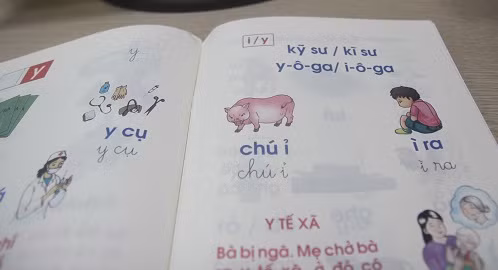 y
y
y cụ
y cụ
i/y
kỹ sư / kĩ sư
y-ô-ga/ i-ô-ga
chú ỉ
chú ỉ
ì ra
ì ra
Y TẾ XÃ
Bà bị ngã. Mẹ chở bà